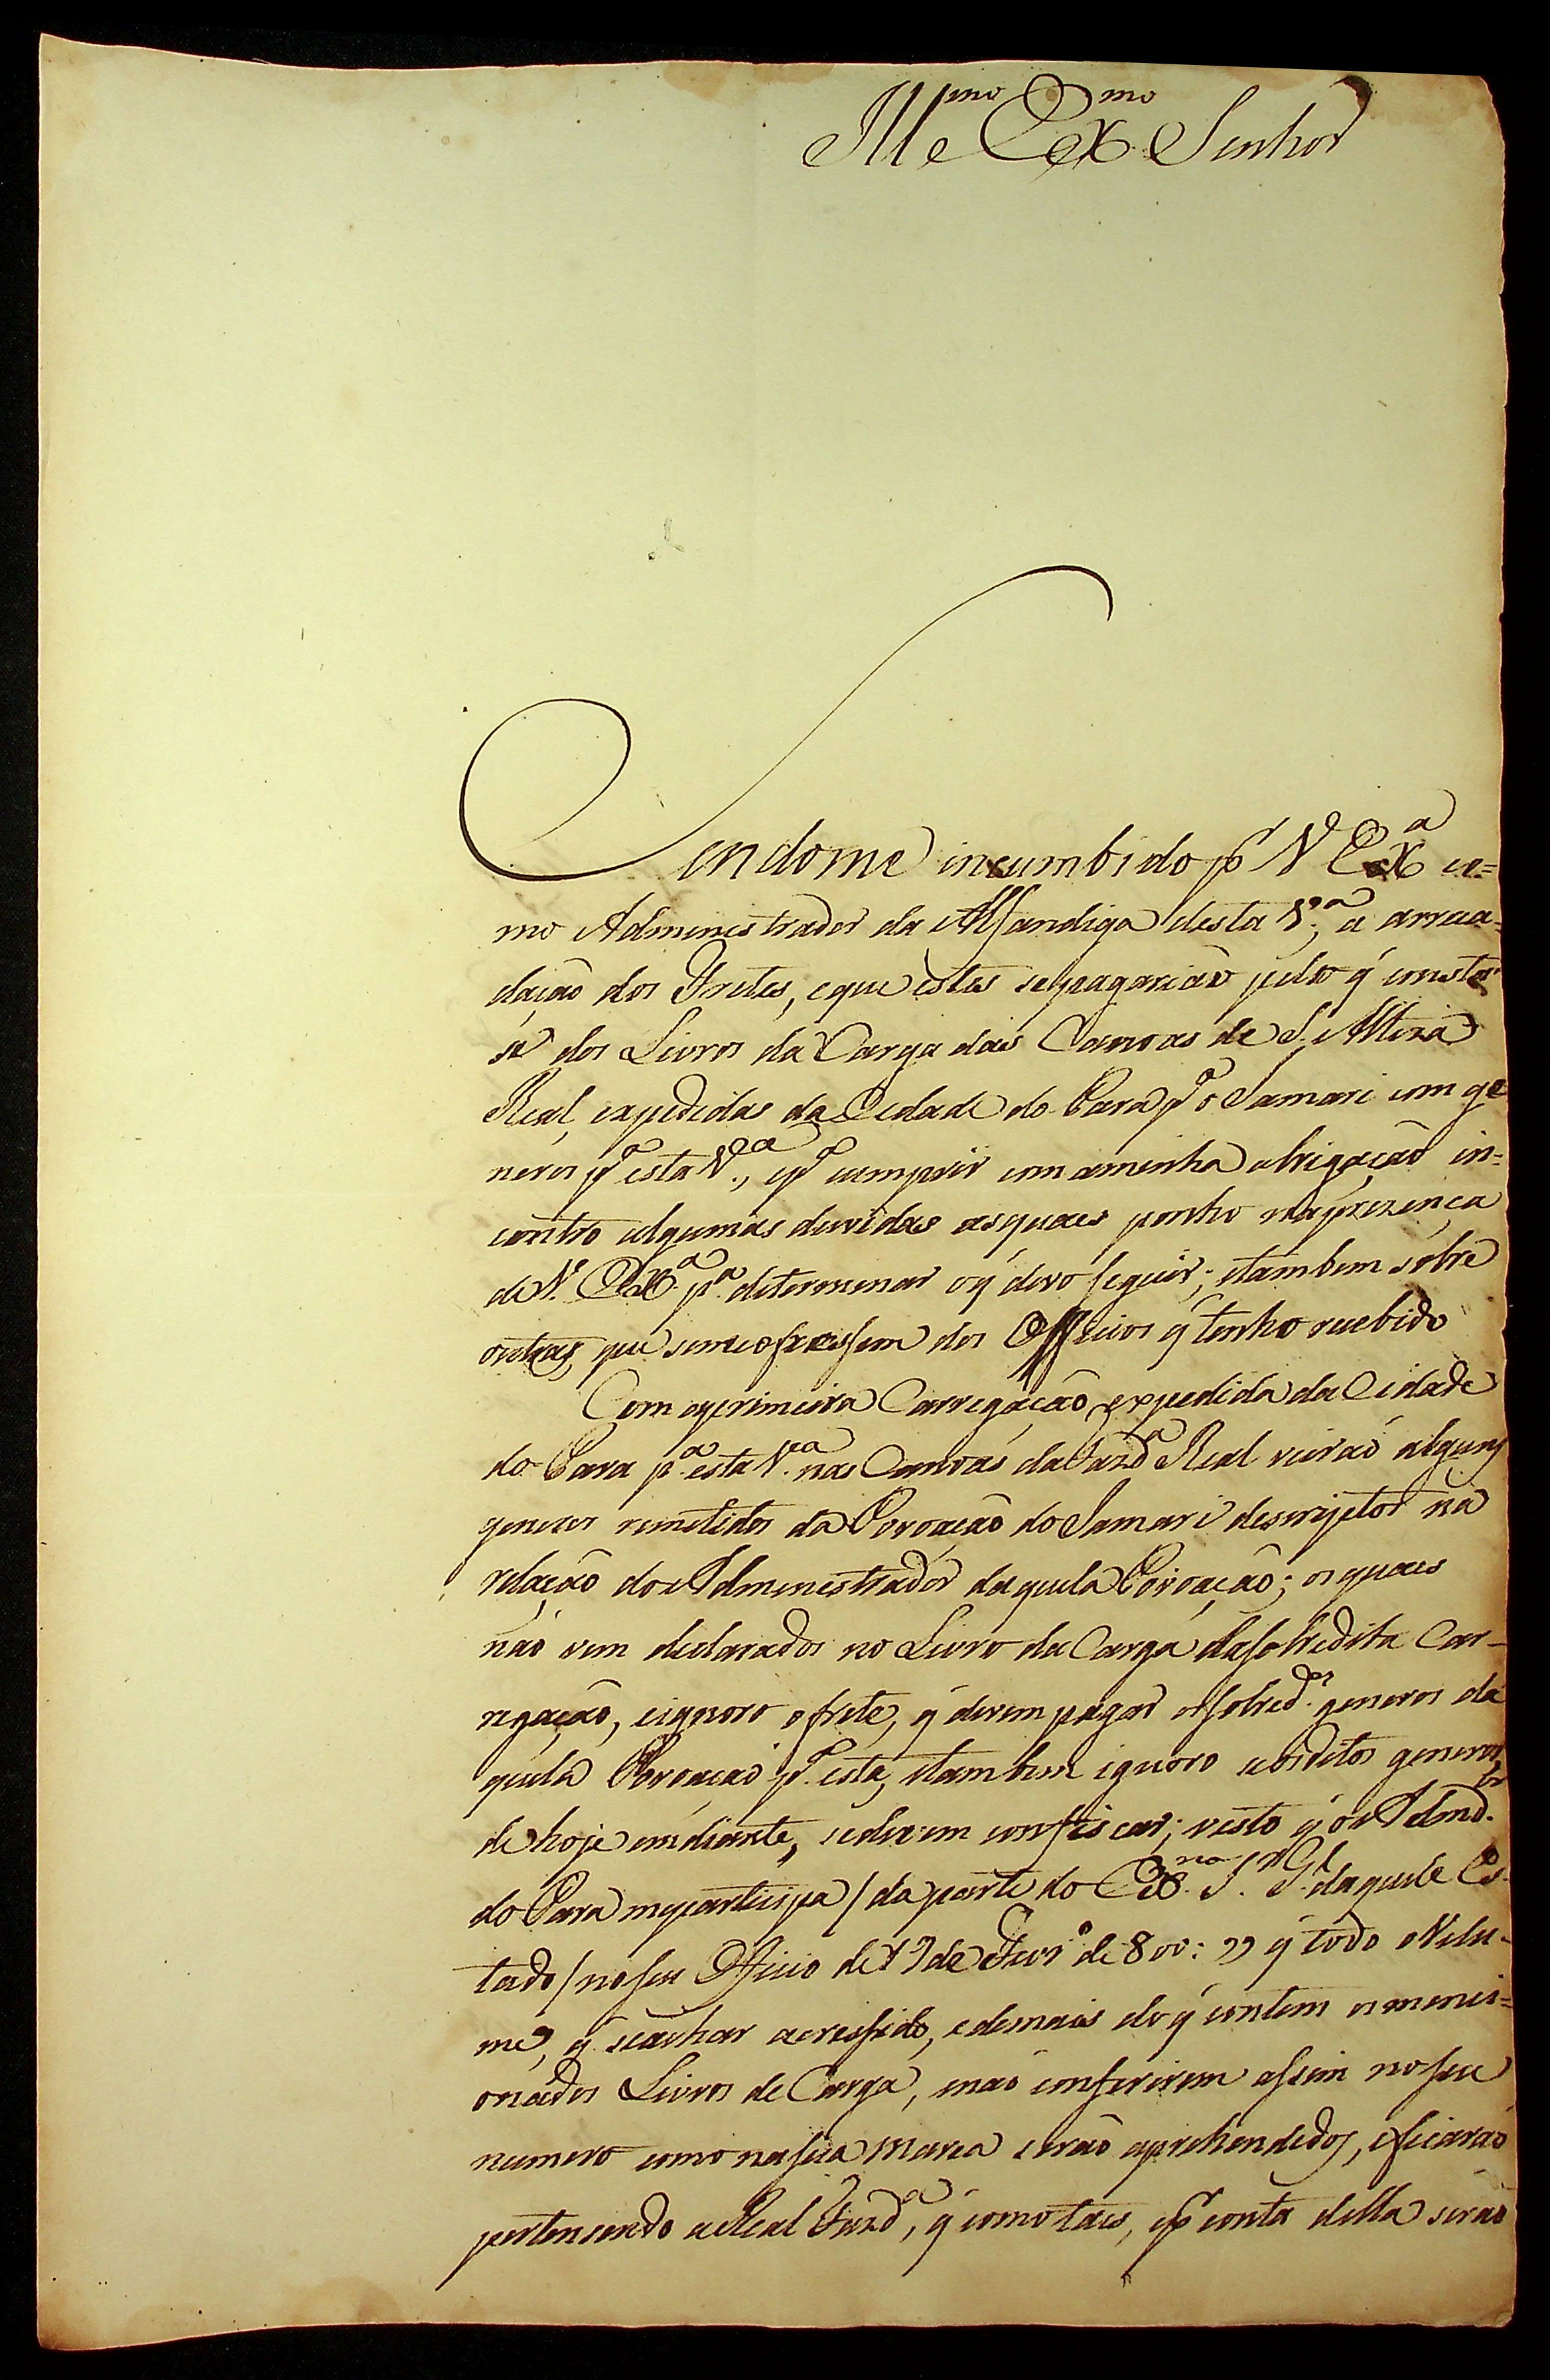 Ill.mo e Ex.mo Senhor
Tendome incumbido p.r V. Ex.a co=
mo Admenistrador da Alfandiga desta V.a, a arreca=
dação dos Fretes, e que estes se pagarião pelo q̃ consta-
se dos Livros da Carga das Canoas de S. Alteza
Real, expedidas da Cidade do Para p.a o Jamari com ge
neros p.a esta V.a, e p.a cumprir com aminha obrigação in=
contro algumas duvidas asquaes ponho na prezença
de V. Ex.a p.a determenar oq̃ devo seguir; etambem sobre
outras, que semeofressem dos Officios q̃ tenho recebido
Com aprimeira Carregação expedida da Cidade
do Para p.a esta V.a nas Canoas da Faz.da Real vierão alguns
generos remetidos da Povoação do Jamari descriptos na
relação do Admenistrador daquela Povoação; os quaes
não vem declarados no Livro da Carga da sobredita Car-
regação, eignoro ofrete, q̃ devem pagar os sobred.os generos da
quela Povoação p.a esta, etambem ignoro se os ditos generos
de hoje emdiante, sedevem confiscar; visto q̃ o Admd.or
do Para meparticipa / da parte do Ex.mo S.r G.l daquele Es-
tado / no seu Oficio de 17 de Fevr.o de 800: " q̃ todo o Volu-
me, q̃ se achar acressido, edemais do q̃ contem os menci=
onados Livros de Carga, enão conferirem assim no seu
numero como na sua marca serão aprehendidos, eficarão
pertensendo a Real Fazd.a, q̃ como taes, e p.r conta della serão